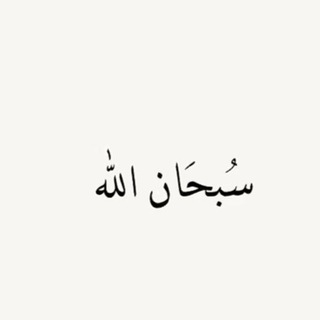 سُبحَان الله